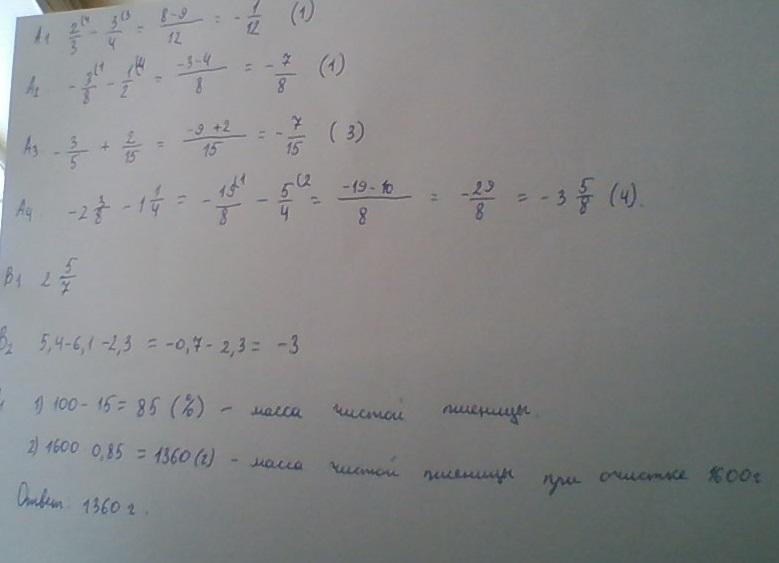 A1 2/3 (4 - 3/4 (3 = 8-9/12 = - 1/12 (1)
A2 - 3/8 (1 - 1/2 (4 = -3-4/8 = - 7/8 (1)
A3 - 3/5 + 2/15 = -9+2/15 = - 7/15 (3)
A4 -2 3/8 - 1 1/4 = - 19/8 (1 - 5/4 (2 = -19-10/8 = - 29/8 = -3 5/8 (4).
B1 2 5/7
B2 5,4-6,1-2,3 = -0,7-2,3 = -3
1) 100-15=85 (%) - масса чистой пшеницы.
2) 1600 0,85 = 1360 (г) - масса чистой пшеницы при очистке 1600 г
Ответ. 1360 г.